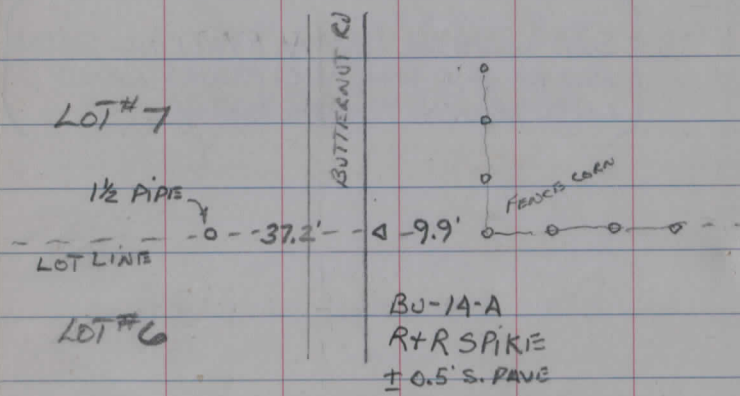 LOT #7
BUTTERNUT RD
1½ PIPE
FENCE CORN
37.2'
9.9'
LOT LINE
LOT #6
BU-14-A
R+R SPIKE
± 0.5' S. PAVE